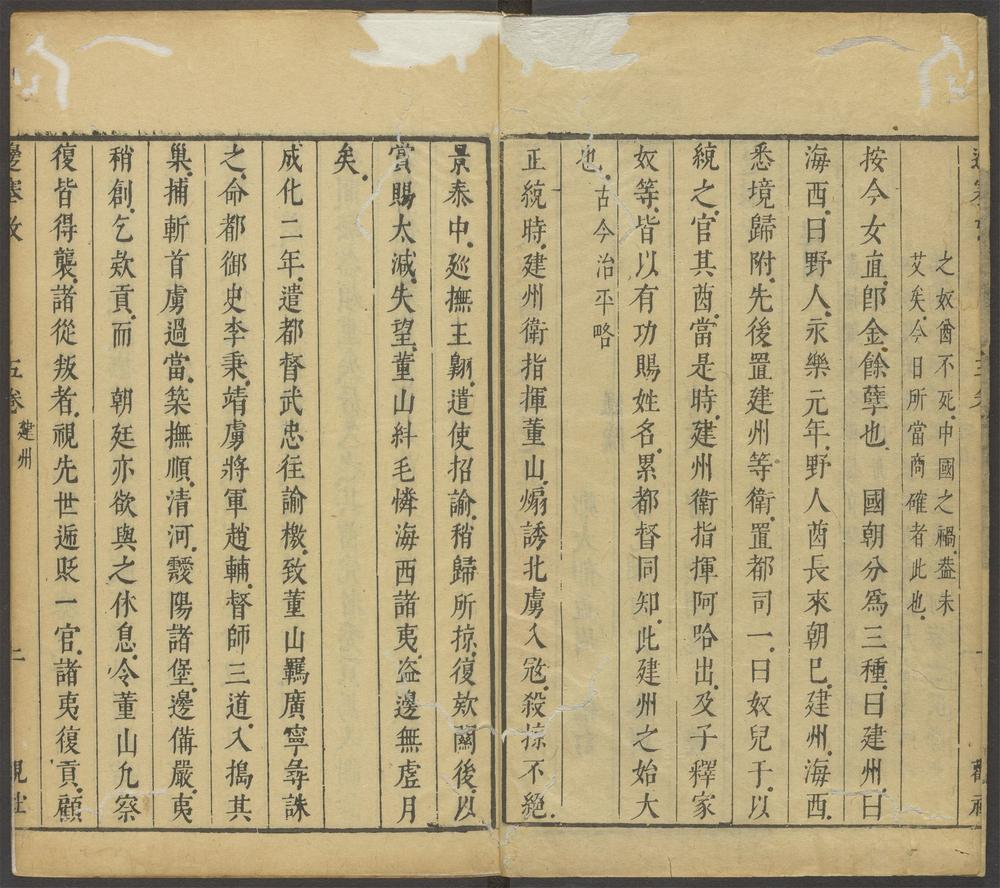 之奴酋不死中國之禍蓋未
艾矣今日所當商確者此也
按今女直卽金餘孽也　國朝分爲三種曰建州曰
海西曰野人永樂元年野人酋長來朝已建州海西
悉境歸附先後置建州等衛置都司一曰奴兒于以
統之官其酋當是時建州衛指揮阿哈出及子釋家
奴等皆以有功賜姓名累都督同知此建州之始大
也古今治平略
正統時建州衛指揮董山煽誘北虜入寇殺掠不絕
景泰中廵撫王翺遣使招諭稍歸所掠復欵關後以
賞賜太減失望董山糾毛憐海西諸夷盜邊無虛月
矣
成化二年遣都督武忠往諭檄致董山羈廣寧尋誅
之命都御史李秉靖虜將軍趙輔督師三道入搗其
巢捕斬首虜過當築撫順清河靉陽諸堡邊備嚴夷
稍創乞欵貢而　朝廷亦欲與之休息令董山九察
復皆得襲諸從叛者視先世遞貶一官諸夷復貢顧
五卷　建州　二